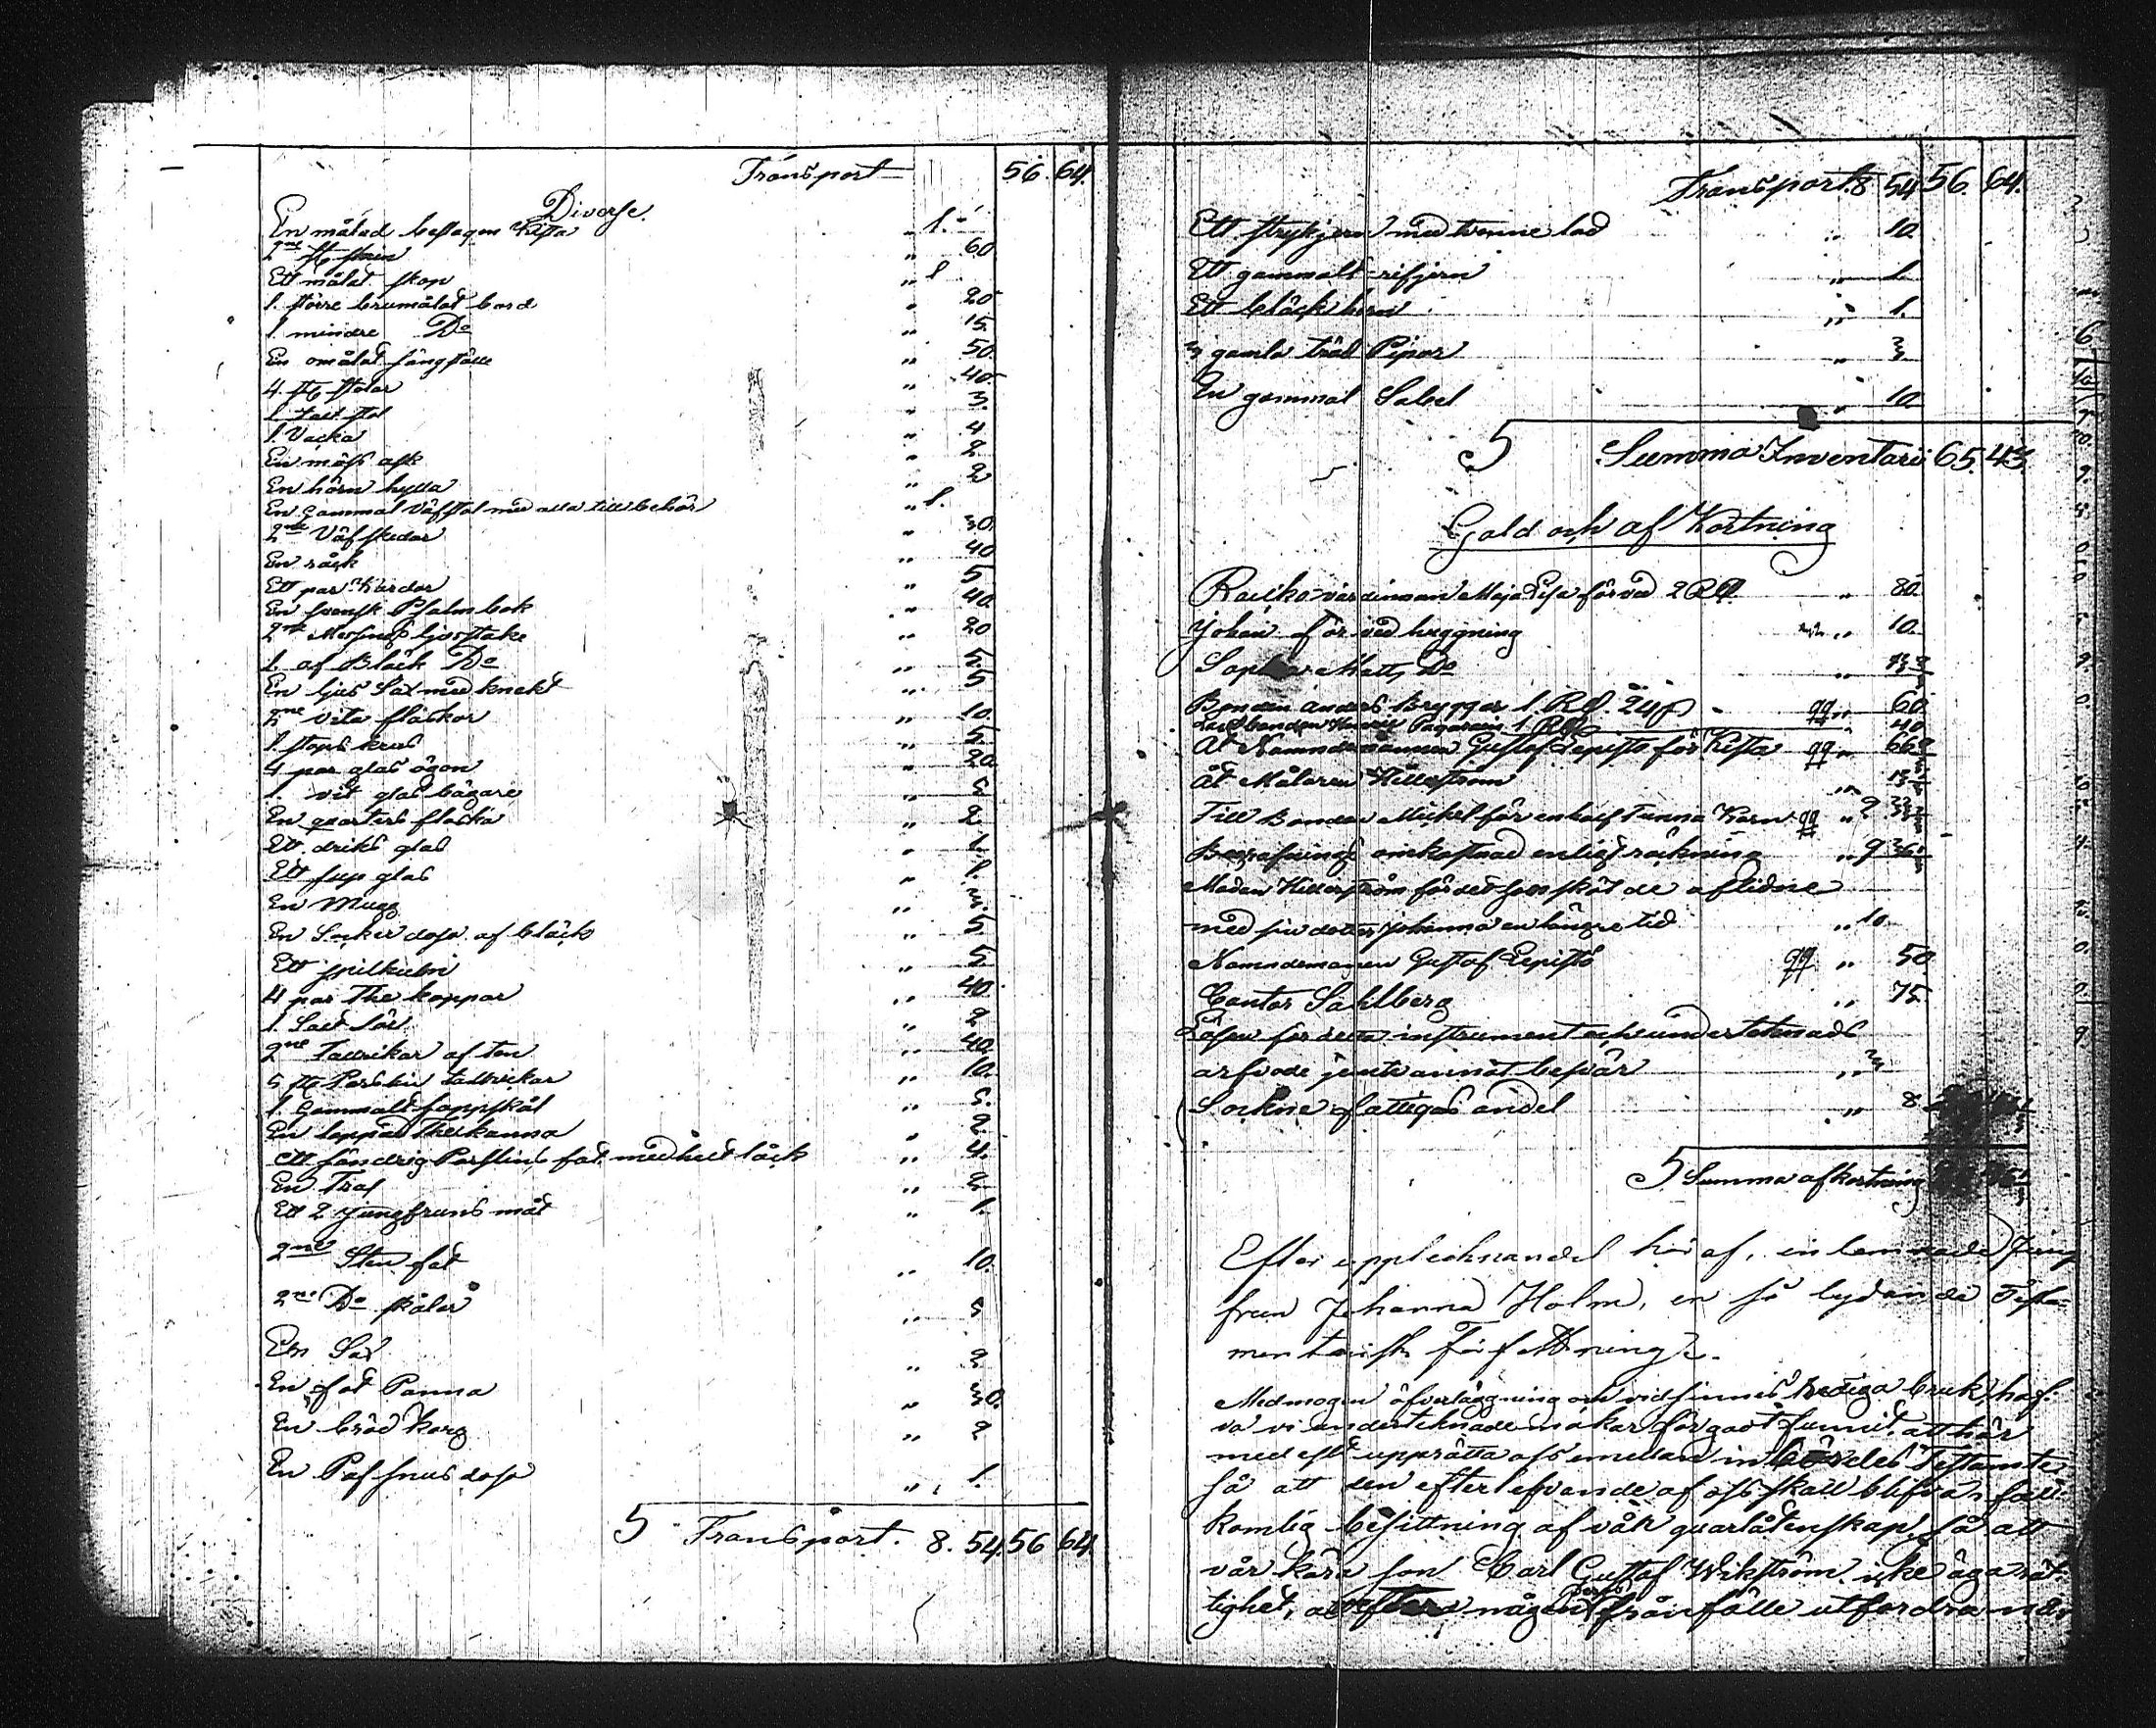 Transport 56. 64.
Diverse.
En målad beslagen Kista „ 1. –
2ne st skrin „ 60
Ett målat skop „ 1
1. större brumålat bord „ 20
1. mindre Do „ 15.
En omålat sängställe „ 50.
4. st stolar „ 40.
1. tall stol „ 3.
1. Vacka „ 4
En mäss ask „ 2.
En hörn hylla „ 2
En Gammal Väfstol med alla tillbehör „ 1.
2ne Väfskedar „ 30.
En råck „ 40
Ett par Kardor „ 5
En svensk Psalmbok „ 40.
2ne Messings ljusstake „ 20
1. af Bläck Do „ 5.
En ljus Sax med knekt „ 5
2ne vita flaskor „ 10.
1. stops krus „ 5.
4 par glas ögon „ 20
1. vit glas bägare „ 5
En quarters flaska „ 2
Ett driks glas „ 1.
Ett sup glas „ 1.
En Mugg „ 3.
En Socker dosa af bläck „ 5
Ett spilkum „ 5.
4 par The koppar „ 40
1. Salt kar „ 2
2ne Tallrikar af ten „ 40.
5 st Porslin tallrickar „ 10.
1. Gammalt soppskål „ 5.
En loppad The kanna „ 2.
ett söndrig Porslins fat med helt låck „ 4.
En Tral „ 2
Ett 2 Jungfruns måt „ 1.
2ne Sten fat „ 10.
2ne Do skålar „ 5
En Sax „ 2
En fot Panna „ 30.
En bröd korg „ 2
En Paf snus dosa „ 1.
5 Transport. 8. 54. 56 64.
Transport. 8 54 56. 64.
Ett strykjern med tvenne lod „ 10.
Ett gammalt rifjern „ 1
Ett bläck horn „ 1.
3 gamla träd Pipor „ 3
En gammal Sabel „ 10.
5 Summa Inventarii 65. 43.
Gäld och af Kortning
Railko värdinnan Maja Lisa för ved 2 Rd „ 80.
Johan för ved huggning „ 10.
Matts Do „ 13
Bonden Anders Bryggar 1. Rd. 24 „ 60.
1 Rd 40
At Namndemannen Gustaf Lepistö för Kista „ 66
Åt Målaren Killerström „ 13
Till Bonden Mickel för en half Tunna Korn „ 2 33
Begrafnings omkostnad enligt räckning „ 9 36
Madam Killerström för det hon skött de aflidne
med sin dotter Johanna en längre tid „ 10.
Namndemannen Gustaf Lepistö „ 50
Cantor Sahlberg „ 75.
Lösen för detta instrument och undertecknads
arfvode jemte annat besvär „ 3
Sockne fattigas andel „ 8
5 Summa afkortning
Efter upptecknandet här af, inlemnade Jung
frun Johanna Holm, en så lydande Testa-
mentarisk Författning.
Med mogen öfverläggning och vid sinnes trediga bruk, haf-
va vi undertecknade makar för godt funnit, att här
medelst upprätta oss emellan inbördes Testamente
så att den efterlefvande af oss skall blifva i full
komlig besittning af vår quarlåtenskap, så att
vår kära son Carl Gustaf Wikström icke äga rät-
tighet, att efter någonders frånfälle utfordra når